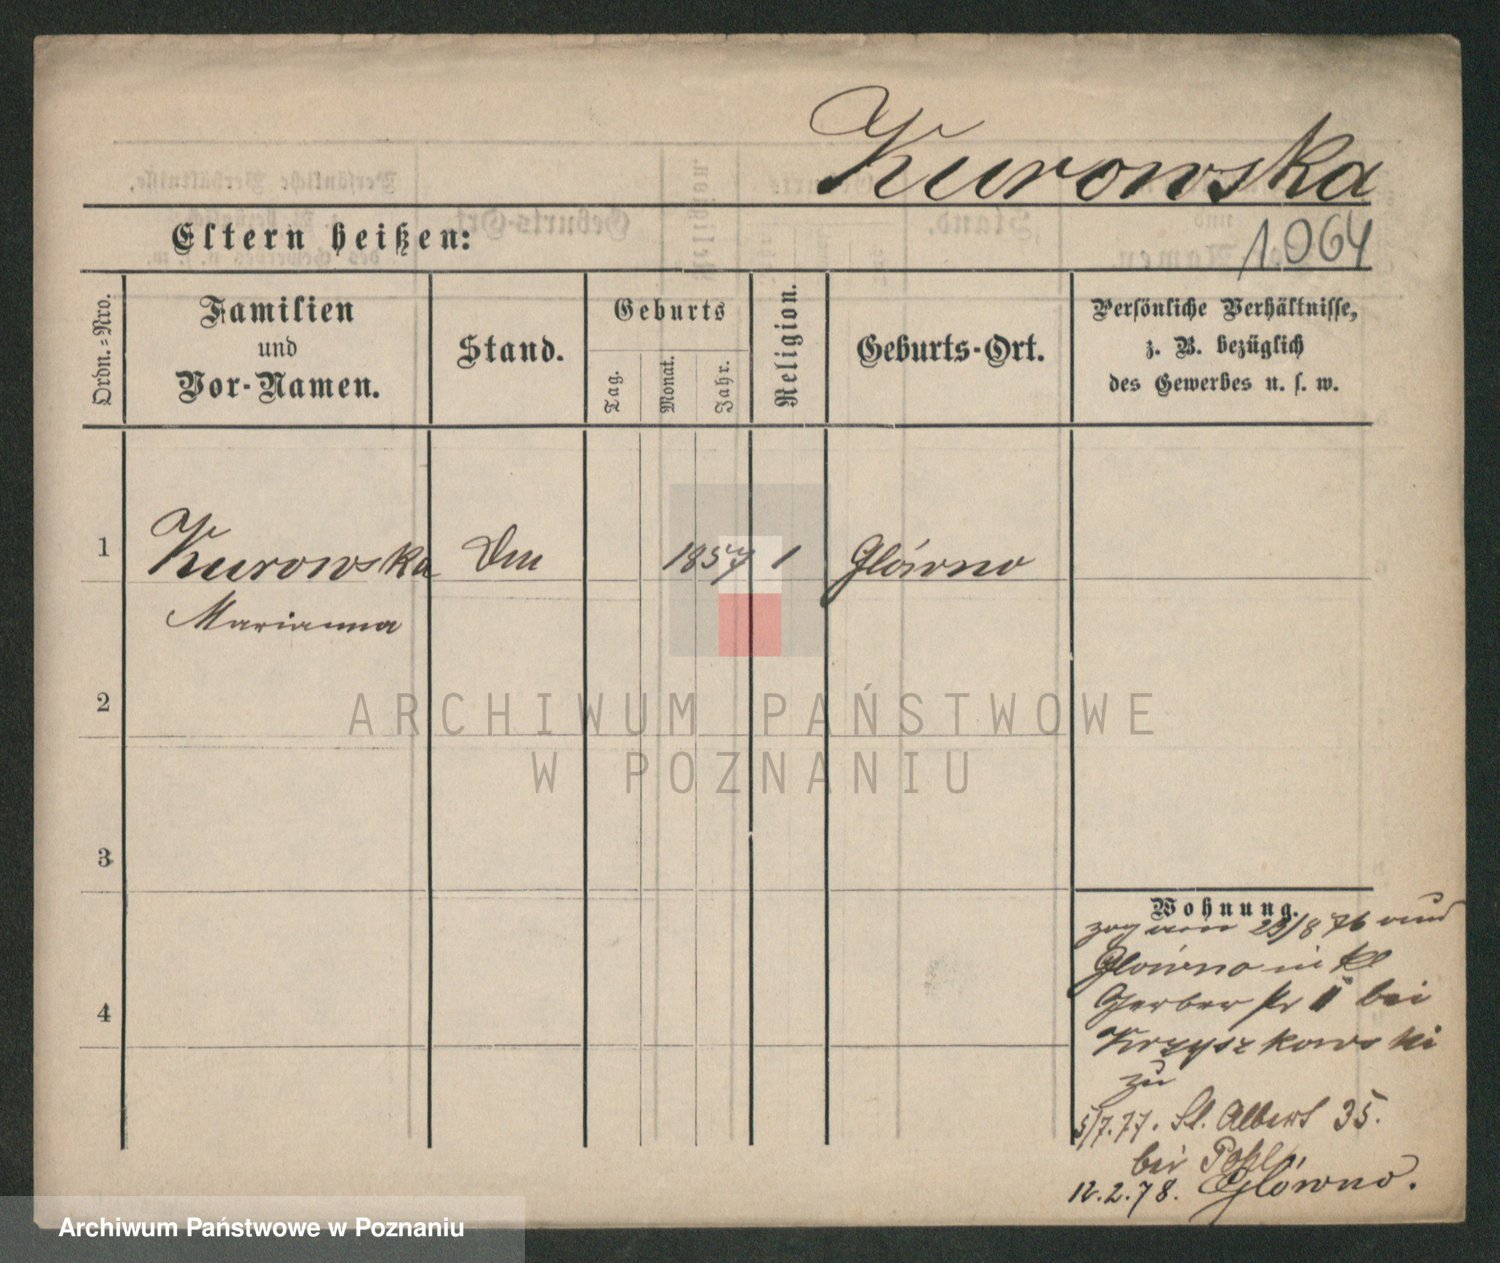 Kurowska
Eltern heißen:
1064
Ordn.-Nro.
Familien
und
Vor-Namen.
Stand.
Geburts
Tag.
Monat.
Jahr.
Religion.
Geburts-Ort.
Persönliche Verhältnisse,
z. B. bezüglich
des Gewerbes u. s. w.
1
Kurowska
Marianna
1857
1
Glówno
2
3
4
Wohnung.
zog 23/8 76
Glówno in
Gerber Str bei
Krzyszkowski
zu
5/7.77. St. Albert 35.
bei Pohl
12.2.78. Glówno.
ARCHIWUM PAŃSTWOWE
W POZNANIU
Archiwum Państwowe w Poznaniu